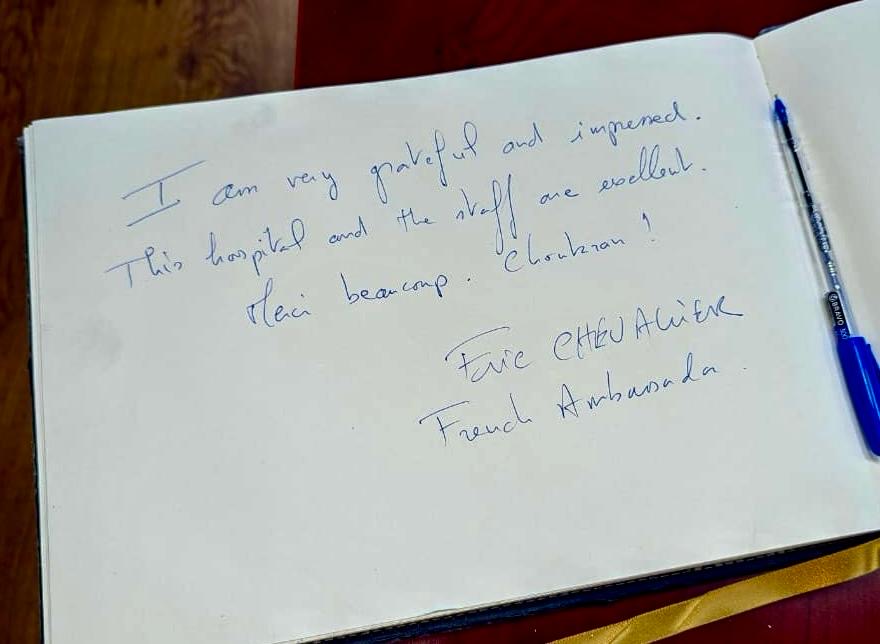 I am very grateful and impressed.
This hospital and the staff are excellent.
Merci beaucoup. Choukran !
Eric CHEVALLIER
French Ambassador
BRAVO